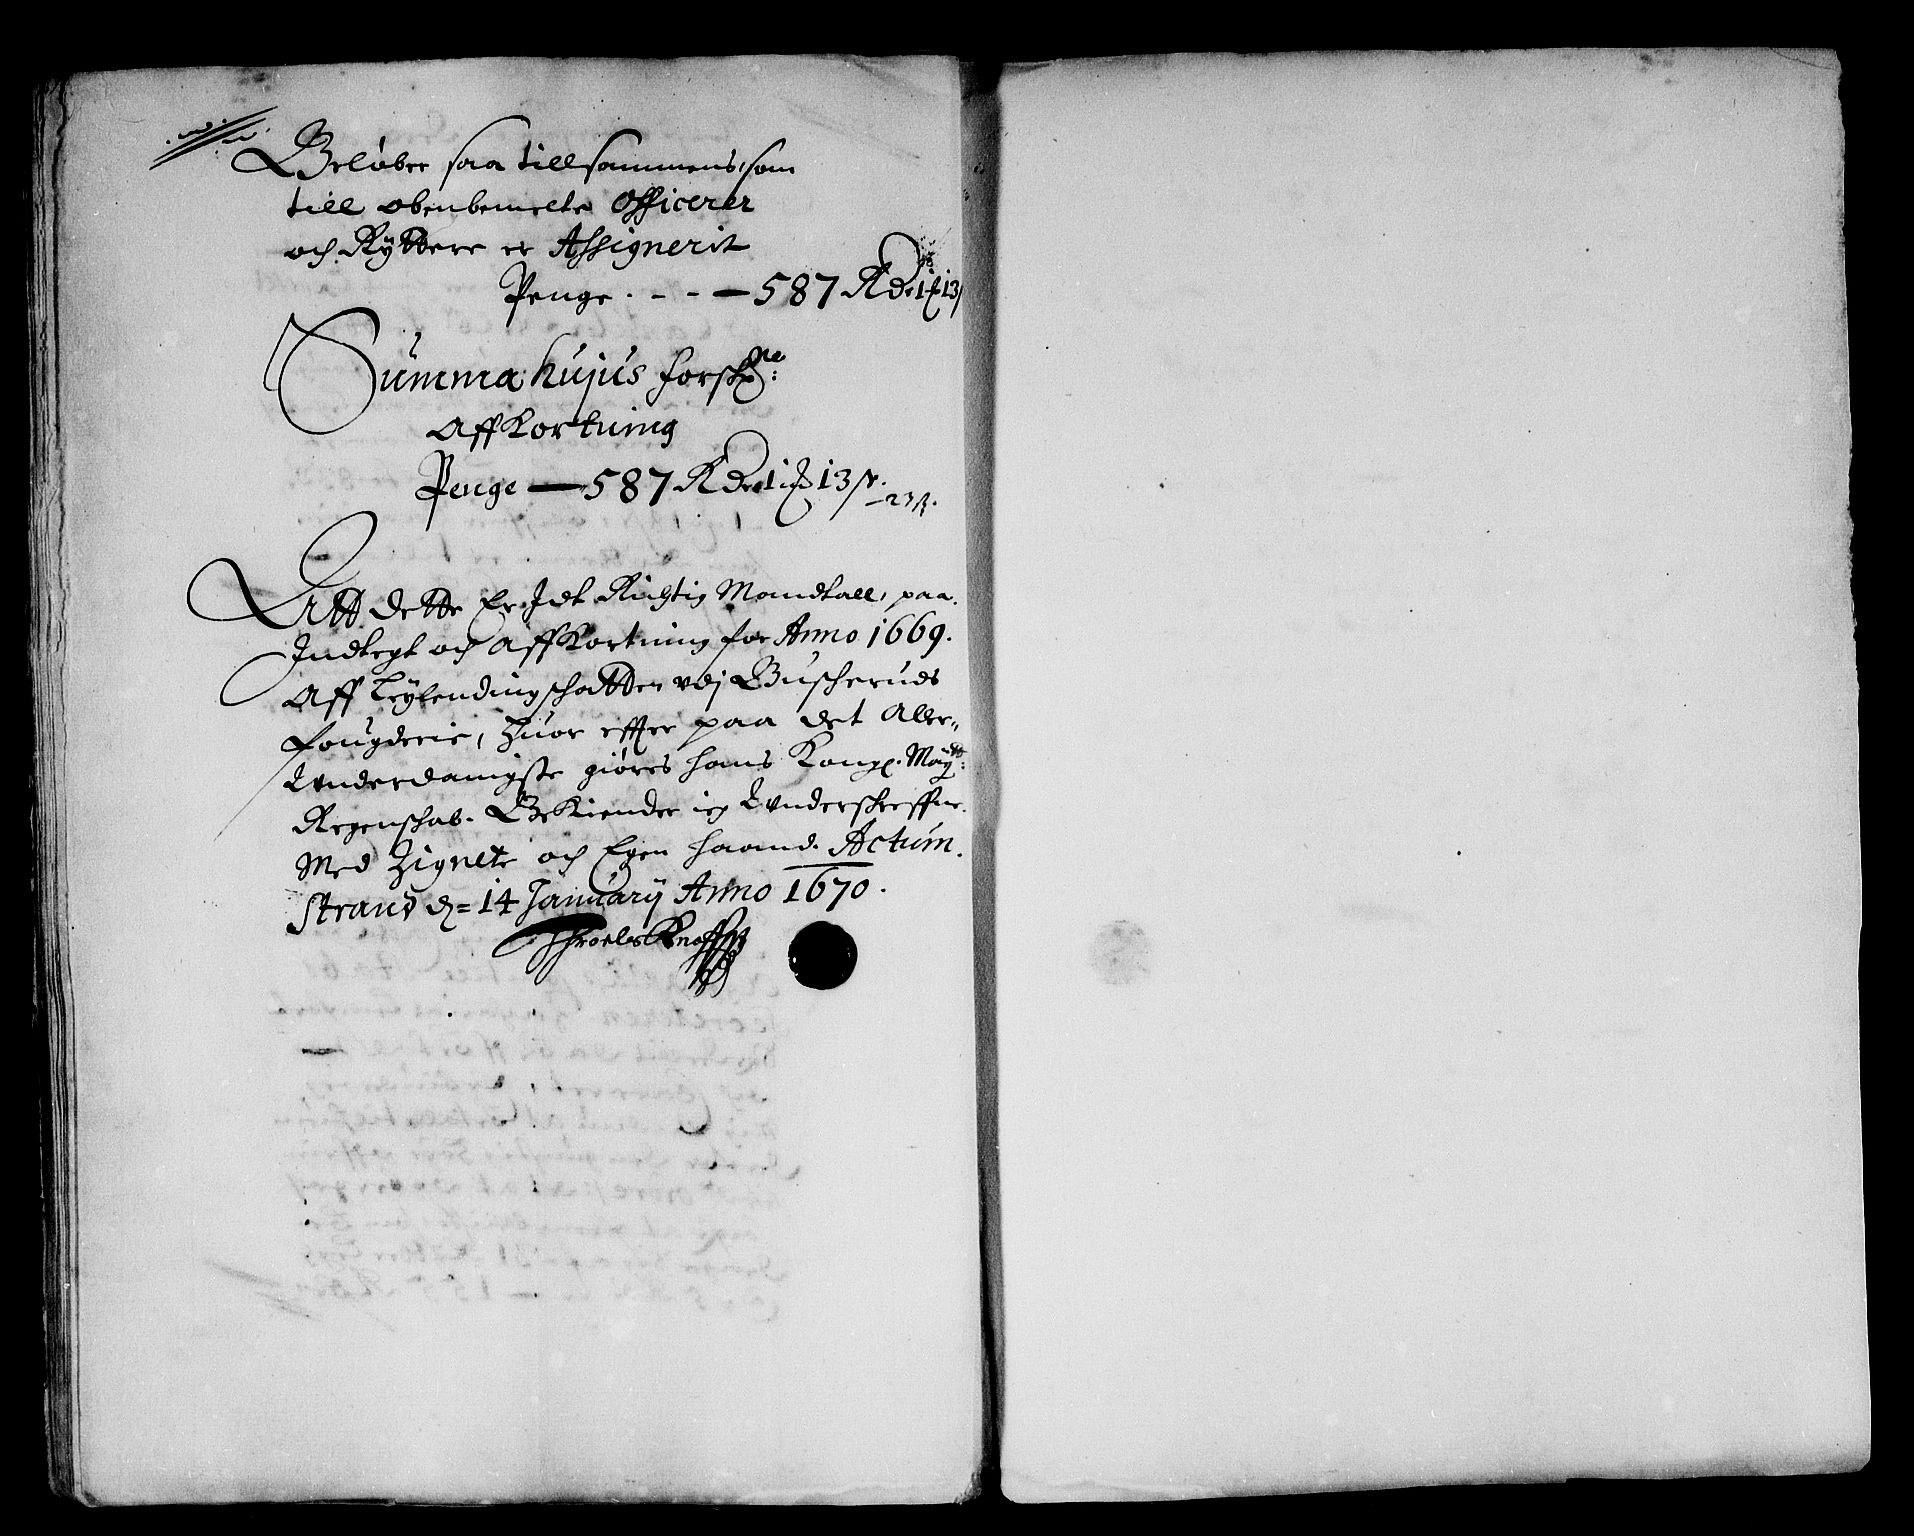 Beløber saa tillsammens, som
till obenbemelte Officerer
och Ryttere er Assignerit
Penge - - - 587 Rdr 1 13
Summa hujus forschne:
AffKortning
Penge — 587 Rdr 1 13 s.
- 23 s.
Att dette Er Idt Richtig Mandtall, paa
Indtegt och AffKortning for Anno 1669.
Aff Leylendingschatten vdj Buscheruds
fougderie, huor effter paa det Aller-
Vnderdanigste giøres hans Kongl. Maytt:
Regenschab. BeKiender ieg Vnderschreffne
Med Zignete och Egen haand. Actum.
Strand d= 14 January Anno 1670.
Throels Knoff